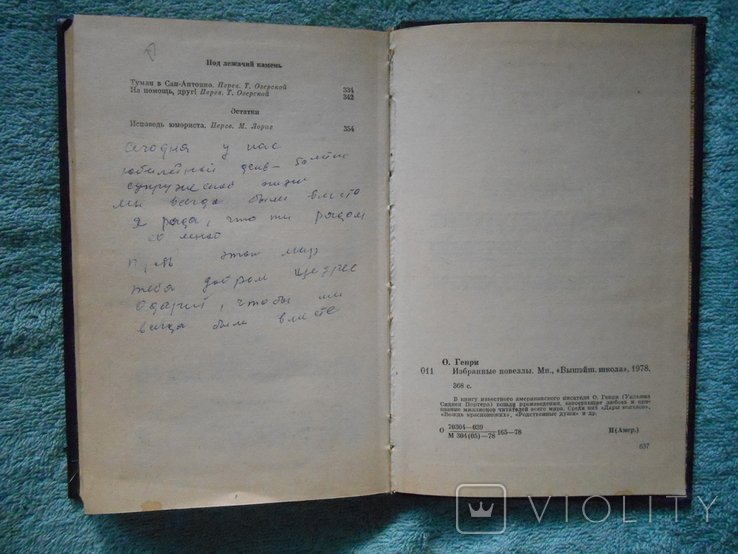 Под лежачий камень
Туман в Сан-Антонио. Перев. Т. Озерской 334
На помощь, друг! Перев. Т. Озерской 342
Остатки
Исповедь юмориста. Перев. М. Лорие 354
Сегодня у нас
юбилейный день – 50 летие
супружеской жизни
мы всегда были вместе
Я рада, что ты рядом
со мной
Пусть этот мир
тебя добром щедрее
одарит, чтобы мы
всегда были вместе
О. Генри
011 Избранные новеллы. Мн., «Вышэйш. школа», 1978.
368 с.
В книгу известного американского писателя О. Генри (Уильяма
Сиднея Портера) вошли произведения, завоевавшие любовь и при-
знание миллионов читателей всего мира. Среди них «Дары волхвов»,
«Вождь краснокожих», «Родственные души» и др.
О 70304—039
М 304(05)—78 165—78 И(Амер.)
637
VIOLITY